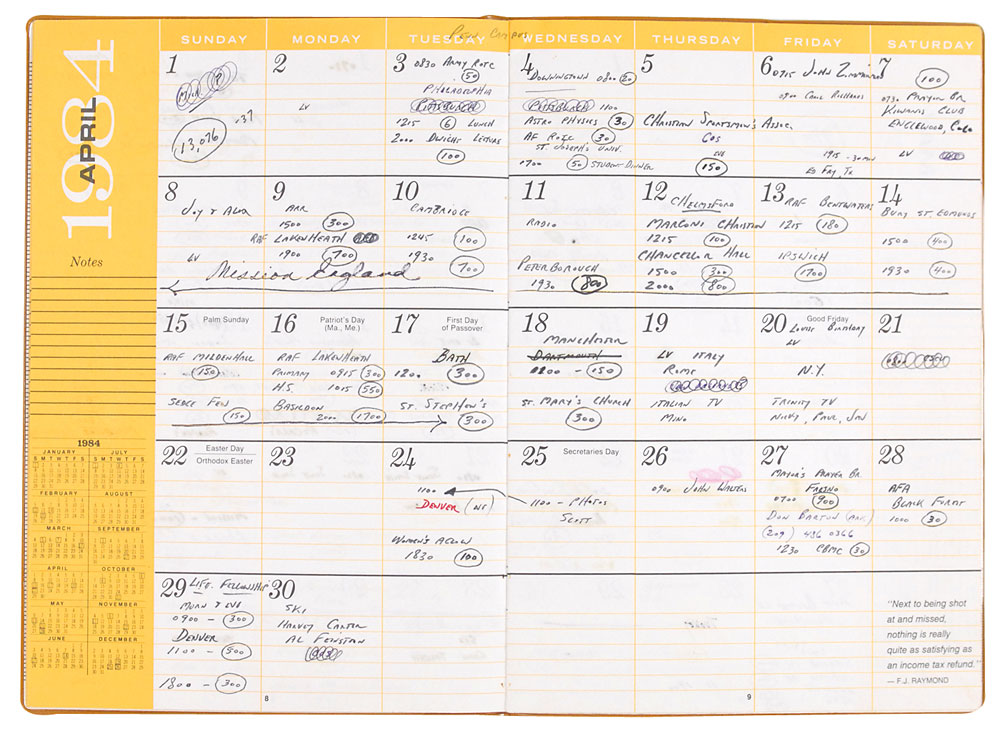 1984
APRIL
Notes
SUNDAY MONDAY TUESDAY WEDNESDAY THURSDAY FRIDAY SATURDAY
1
13,076 -37
2
LV
3 0830 ARMY ROTC
50
PHILADELPHIA
PITTSBURGH
1215 6 LUNCH
2000 DWIGHT LECTURE
100
4
DOWNINGTOWN 0800 20
PITTSBURGH 1100
ASTRO PHYSICS 30
AF ROTC 30
ST. JOSEPH'S UNIV.
1700 50 STUDENT DINNER
5
CHRISTIAN SPORTSMEN'S ASSOC.
COS
EVE
150
6 0715 JOHN
0900 CARL RICHARDS
1915 - 30 MIN
7
100
0730 PRAYER BR.
KIWANIS CLUB
ENGLEWOOD, COLO
LV
8
JOY & ALAN
LV
Mission England
9
ARR
1500 300
RAF LAKENHEATH
1900 700
10
CAMBRIDGE
1245 100
1930 700
11
RADIO
PETERBOROUGH
1930 800
12 CHELMSFORD
MARCONI CHRISTIAN
1215 100
CHANCELLOR HALL
1500 300
2000 800
13 RAF BENTWATERS
1215 180
IPSWICH
1700
14
BURY ST. EDMONDS
1500 400
1930 400
15 Palm Sunday
RAF MILDENHALL
150
SEDGE FEN
150
16 Patriot's Day
(Ma., Me.)
RAF LAKENHEATH
PRIMARY 0915 300
H.S. 1015 550
BASILDON
2000 1700
17 First Day
of Passover
BATH
1200 300
ST. STEPHEN'S
300
18
MANCHESTER
DARTMOUTH
1200 - 150
ST. MARY'S CHURCH
300
19
LV ITALY
ROME
ITALIAN TV
MINO
20 Good Friday
LOUISE BIRTHDAY
LV
N.Y.
TRINITY TV
NICKY, PAUL, JAN
21
22 Easter Day
Orthodox Easter
23
24
1100
DENVER (NC)
WOMEN'S AGLOW
1830 100
25 Secretaries Day
1100 - PHOTOS
SCOTT
26
0900 JOHN WALTERS
27
MAYOR'S PRAYER BR.
FRESNO
0700 900
DON BARTON
(209) 486 0366
1230 CBMC 30
28
AFA
BLACK FOREST
1000 30
29 LIFE FELLOWSHIP
MORN & EVE
0900 - 300
DENVER
1100 - 500
1800 - 300
30
SKI
HARVEY CARTER
AL FEINSTAN
"Next to being shot
at and missed,
nothing is really
quite as satisfying as
an income tax refund."
— F.J. RAYMOND
1984
JANUARY JULY
S M T W T F S S M T W T F S
FEBRUARY AUGUST
MARCH SEPTEMBER
APRIL OCTOBER
MAY NOVEMBER
JUNE DECEMBER
8
9